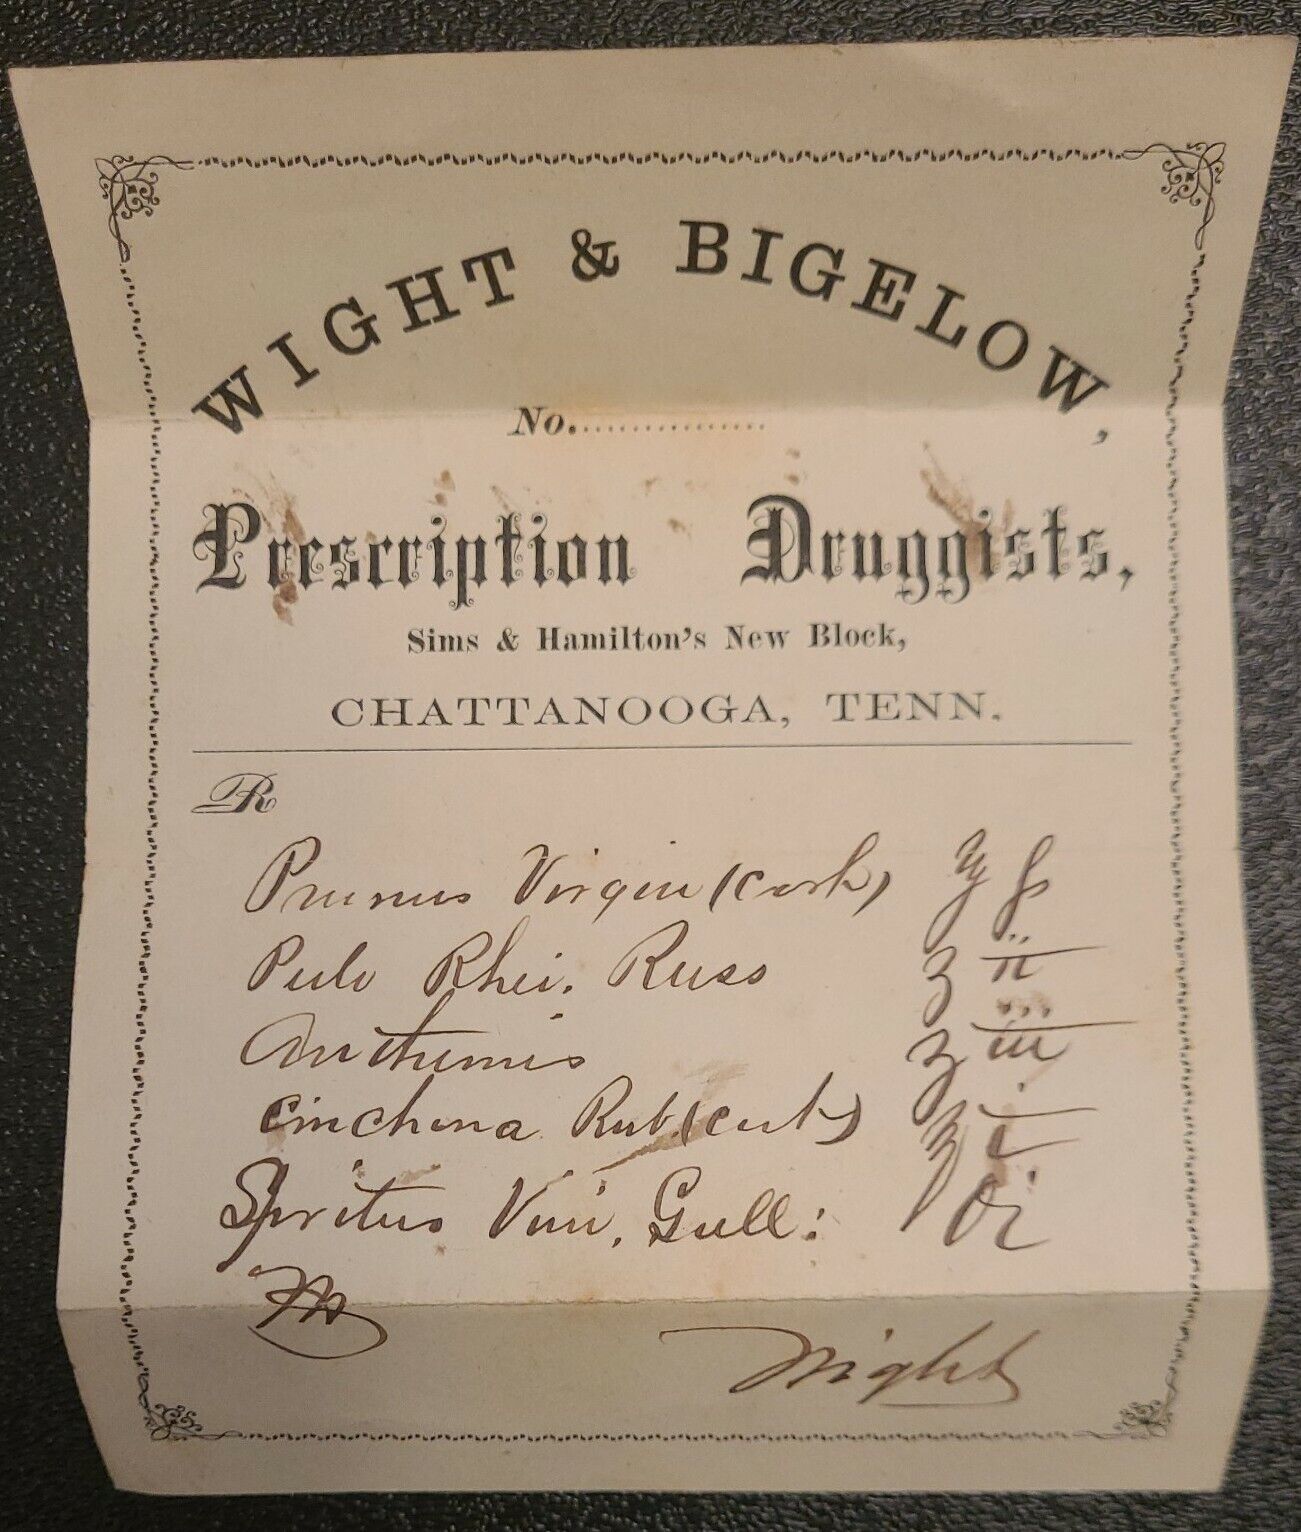 WIGHT & BIGELOW,
No.................
Prescription Druggists,
Sims & Hamilton's New Block,
CHATTANOOGA, TENN.
℞
Prunus Virgin (cort) ℥ fs
Pulv Rhei. Russ ʒ ii
Anthemis ʒ iii
Cinchona Rub. (cort) ℥ i
Spritus Vini, Gall: Oi
Wight